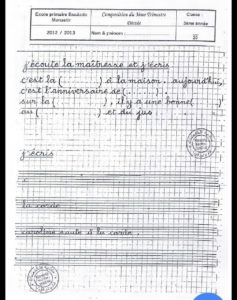 Ecole primaire Baudoute Monastir
Composition du 3ème Trimestre
Dictée
Classe :
3ème année
2012 / 2013
Nom & prénom :
j'écoute la maîtresse et j'écris
c'est la (........) à la maison. aujourd'hui,
c'est l'anniversaire de (.......).
sur la (.......), il y a une bonne (......)
au (.......) et du jus
j'écris
la corde
caroline saute à la corde.